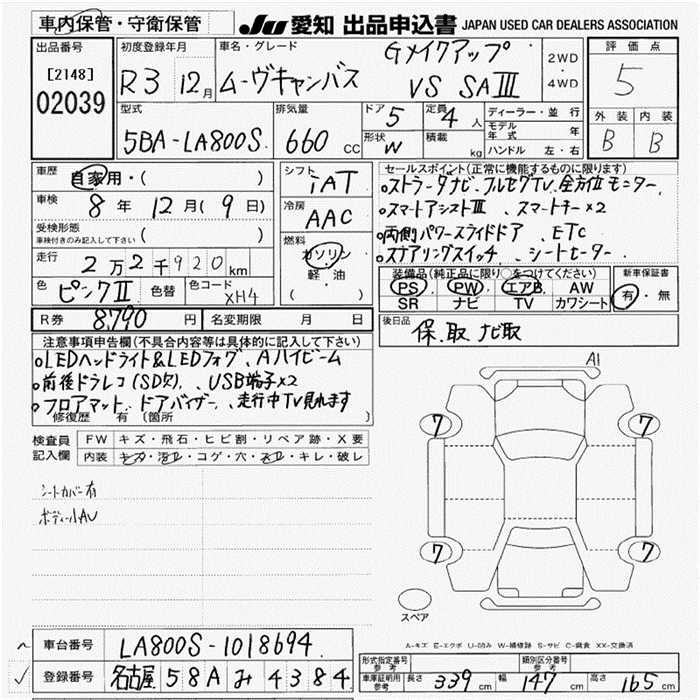 車内保管・守衛保管
JU 愛知 出品申込書 JAPAN USED CAR DEALERS ASSOCIATION
出品番号
[2148]
02039
初度登録年月
R3 12月
車名・グレード
ムーヴキャンバス
Gメイクアップ
VS SAIII
2WD
・
4WD
評価点
5
外装 内装
B B
型式
5BA-LA800S
排気量
660 cc
ドア 5
形状 W
定員 4人
積載 kg
ディーラー・並行
モデル年式 年
ハンドル 左・右
車歴 自家用・( )
車検 8年12月(9日)
受検形態
車検付きのみ記入して下さい ( )
走行 2万2千920km
色 ピンクII 色替 色コード XH4
シフト
iAT
冷房
AAC
燃料
ガソリン
軽・油
( )
セールスポイント(正常に機能するものに限ります)
○ストラーダナビ、フルセグTV、全方位モニター
○スマートアシストIII、スマートキー×2
○両側パワースライドドア、ETC
○ステアリングスイッチ、シートヒーター
装備品(純正品に限り○をつけてください)
PS PW エアB AW
SR ナビ TV カワシート
新車保証書
有・無
R券 8,790円 名変期限 月 日
後日品
保、取、ナビ取
注意事項申告欄(不具合内容等は具体的に記入して下さい)
○LEDヘッドライト&LEDフォグ、Aハイビーム
○前後ドラレコ(SD欠)、USB端子×2
○フロアマット、ドアバイザー、走行中TV見れます
修復歴 有 〔箇所 〕
検査員
記入欄
FW キズ・飛石・ヒビ割・リペア跡・X要
内装 キズ・汚レ・コゲ・穴・スレ・キレ・破レ
シートカバー有
ボディー小AU
A1
7 7
7 7
スペア
A-キズ E-エクボ U-凹み W-補修跡 S-サビ C-腐食 XX-交換済
車台番号 LA800S-1018694
登録番号 名古屋 58A み 4384
形式指定番号
参考
類別区分番号
参考
車庫証明用
参考
長さ 339cm 幅 147cm 高さ 165cm